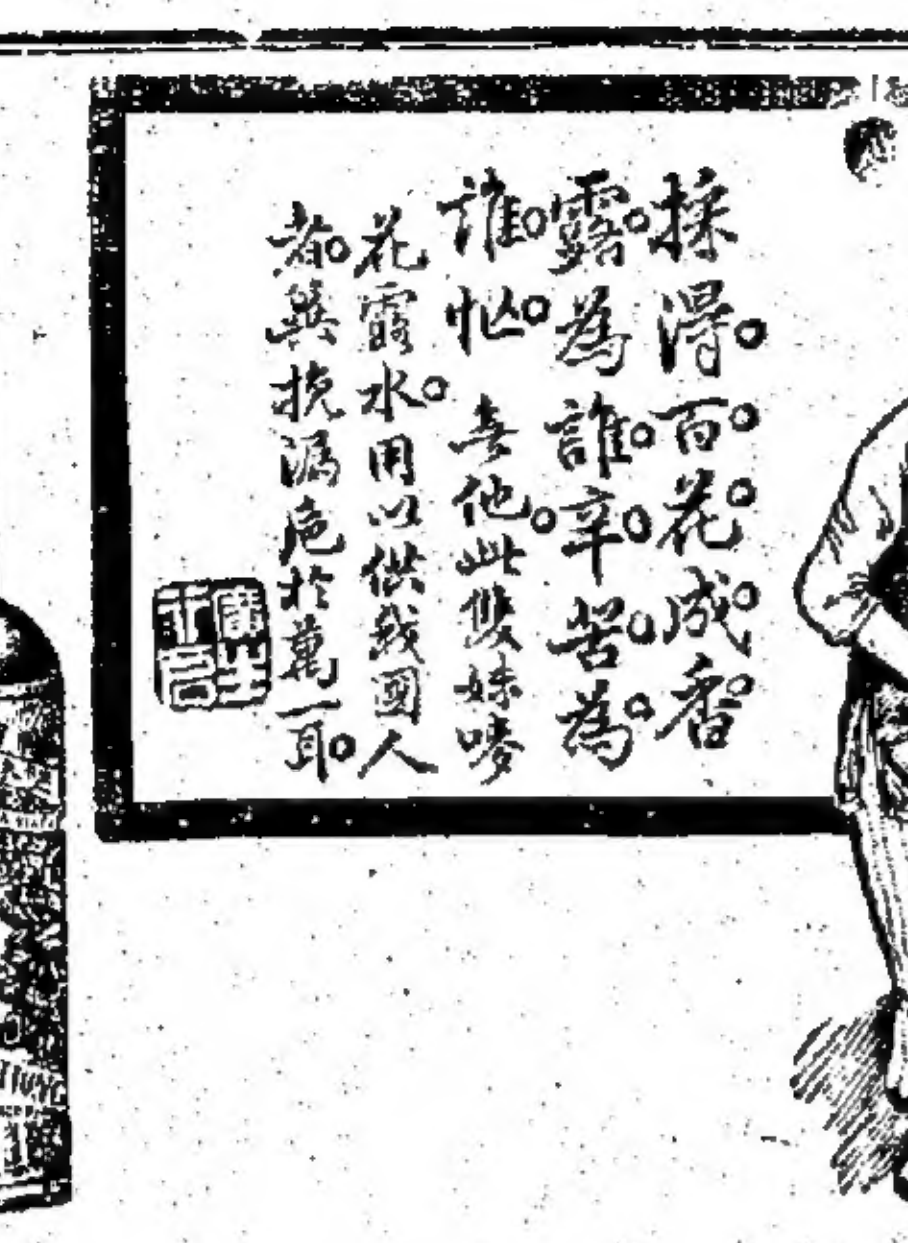 採得百花成香
露為誰辛苦為
誰忙。無他。此雙妹嘜
花露水。用以供我國人
者。冀挽漏卮於萬一耳。
廣生行